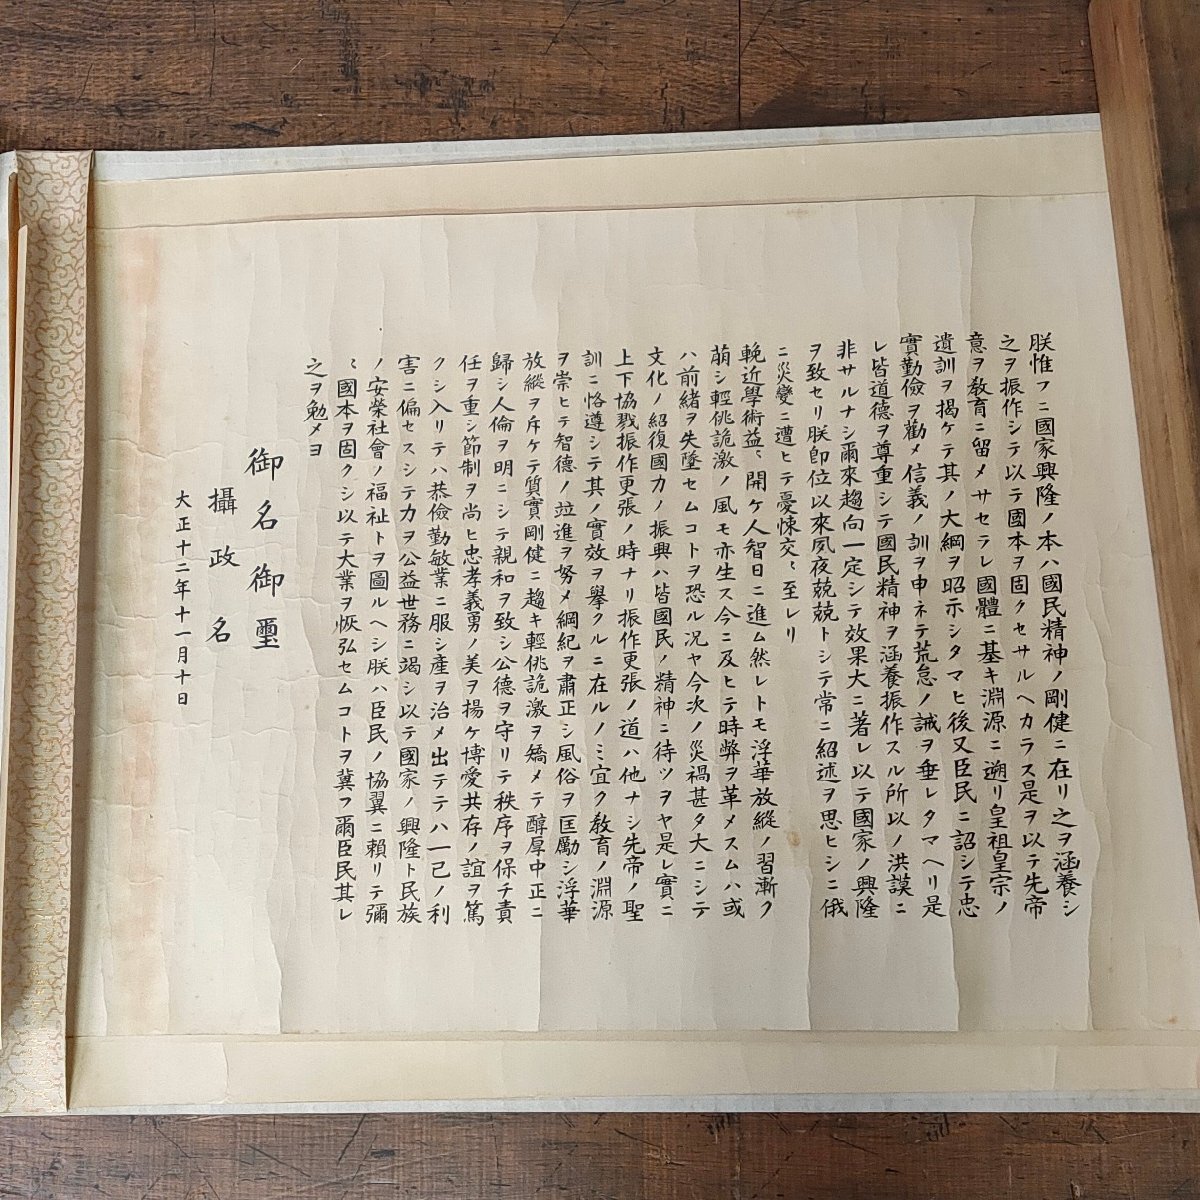 朕惟フニ國家興隆ノ本ハ國民精神ノ剛健ニ在リ之ヲ涵養シ
之ヲ振作シテ以テ國本ヲ固クセサルヘカラス是ヲ以テ先帝
意ヲ敎育ニ留メサセラレ國體ニ基キ淵源ニ遡リ皇祖皇宗ノ
遺訓ヲ掲ケテ其ノ大綱ヲ昭示シタマヒ後又臣民ニ詔シテ忠
實勤儉ヲ勸メ信義ノ訓ヲ申ネテ荒怠ノ誡ヲ垂レタマヘリ是
レ皆道德ヲ尊重シテ國民精神ヲ涵養振作スル所以ノ洪謨ニ
非サルナシ爾來趨向一定シテ效果大ニ著レ以テ國家ノ興隆
ヲ致セリ朕卽位以來夙夜兢兢トシテ常ニ紹述ヲ思ヒシニ俄
ニ災變ニ遭ヒテ憂悚交〻至レリ
輓近學術益〻開ケ人智日ニ進ム然レトモ浮華放縱ノ習漸ク
萠シ輕佻詭激ノ風モ亦生ス今ニ及ヒテ時弊ヲ革メスムハ或
ハ前緒ヲ失墜セムコトヲ恐ル况ヤ今次ノ災禍甚タ大ニシテ
文化ノ紹復國力ノ振興ハ皆國民ノ精神ニ待ツヲヤ是レ實ニ
上下協戮振作更張ノ時ナリ振作更張ノ道ハ他ナシ先帝ノ聖
訓ニ恪遵シテ其ノ實效ヲ擧クルニ在ルノミ宜ク敎育ノ淵源
ヲ崇ヒテ智德ノ竝進ヲ努メ綱紀ヲ肅正シ風俗ヲ匡勵シ浮華
放縱ヲ斥ケテ質實剛健ニ趨キ輕佻詭激ヲ矯メテ醇厚中正ニ
歸シ人倫ヲ明ニシテ親和ヲ致シ公德ヲ守リテ秩序ヲ保チ責
任ヲ重シ節制ヲ尚ヒ忠孝義勇ノ美ヲ揚ケ博愛共存ノ誼ヲ篤
クシ入リテハ恭儉勤敏業ニ服シ產ヲ治メ出テテハ一己ノ利
害ニ偏セスシテ力ヲ公益世務ニ竭シ以テ國家ノ興隆ト民族
ノ安榮社會ノ福祉トヲ圖ルヘシ朕ハ臣民ノ協翼ニ賴リテ彌
〻國本ヲ固クシ以テ大業ヲ恢弘セムコトヲ冀フ爾臣民其レ
之ヲ勉メヨ
御名御璽
攝政名
大正十二年十一月十日